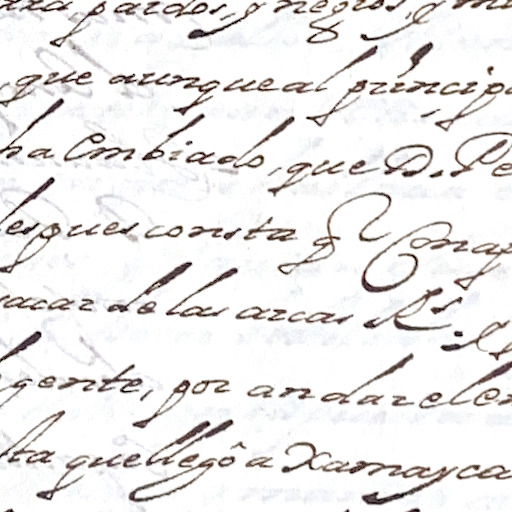 pardos, y negros, y
que aunque al princip
ha embiado, que D. Pe
despues consta q
sacar de las arcas R.s
gente, por andar el en
ta que llegô a Xamayca